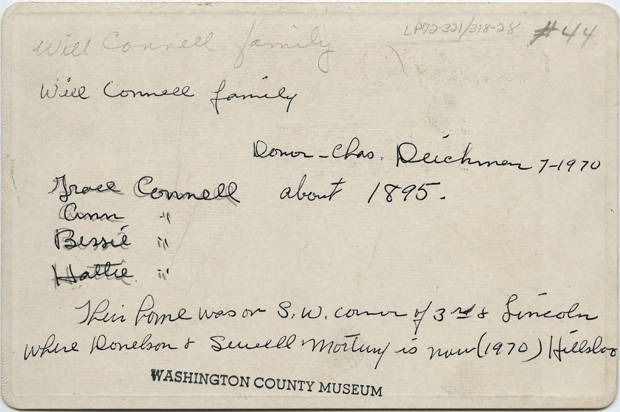 LP72-321/318-28 #44
Will Connell family
Will Connell family
Donor - Chas. Deichman 7-1970
Grace Connell about 1895.
Ann "
Bessie "
Hattie "
Their home was on S.W. corner of 3rd & Lincoln
where Donelson & Sewell Mortury is now (1970) Hillsboro
WASHINGTON COUNTY MUSEUM